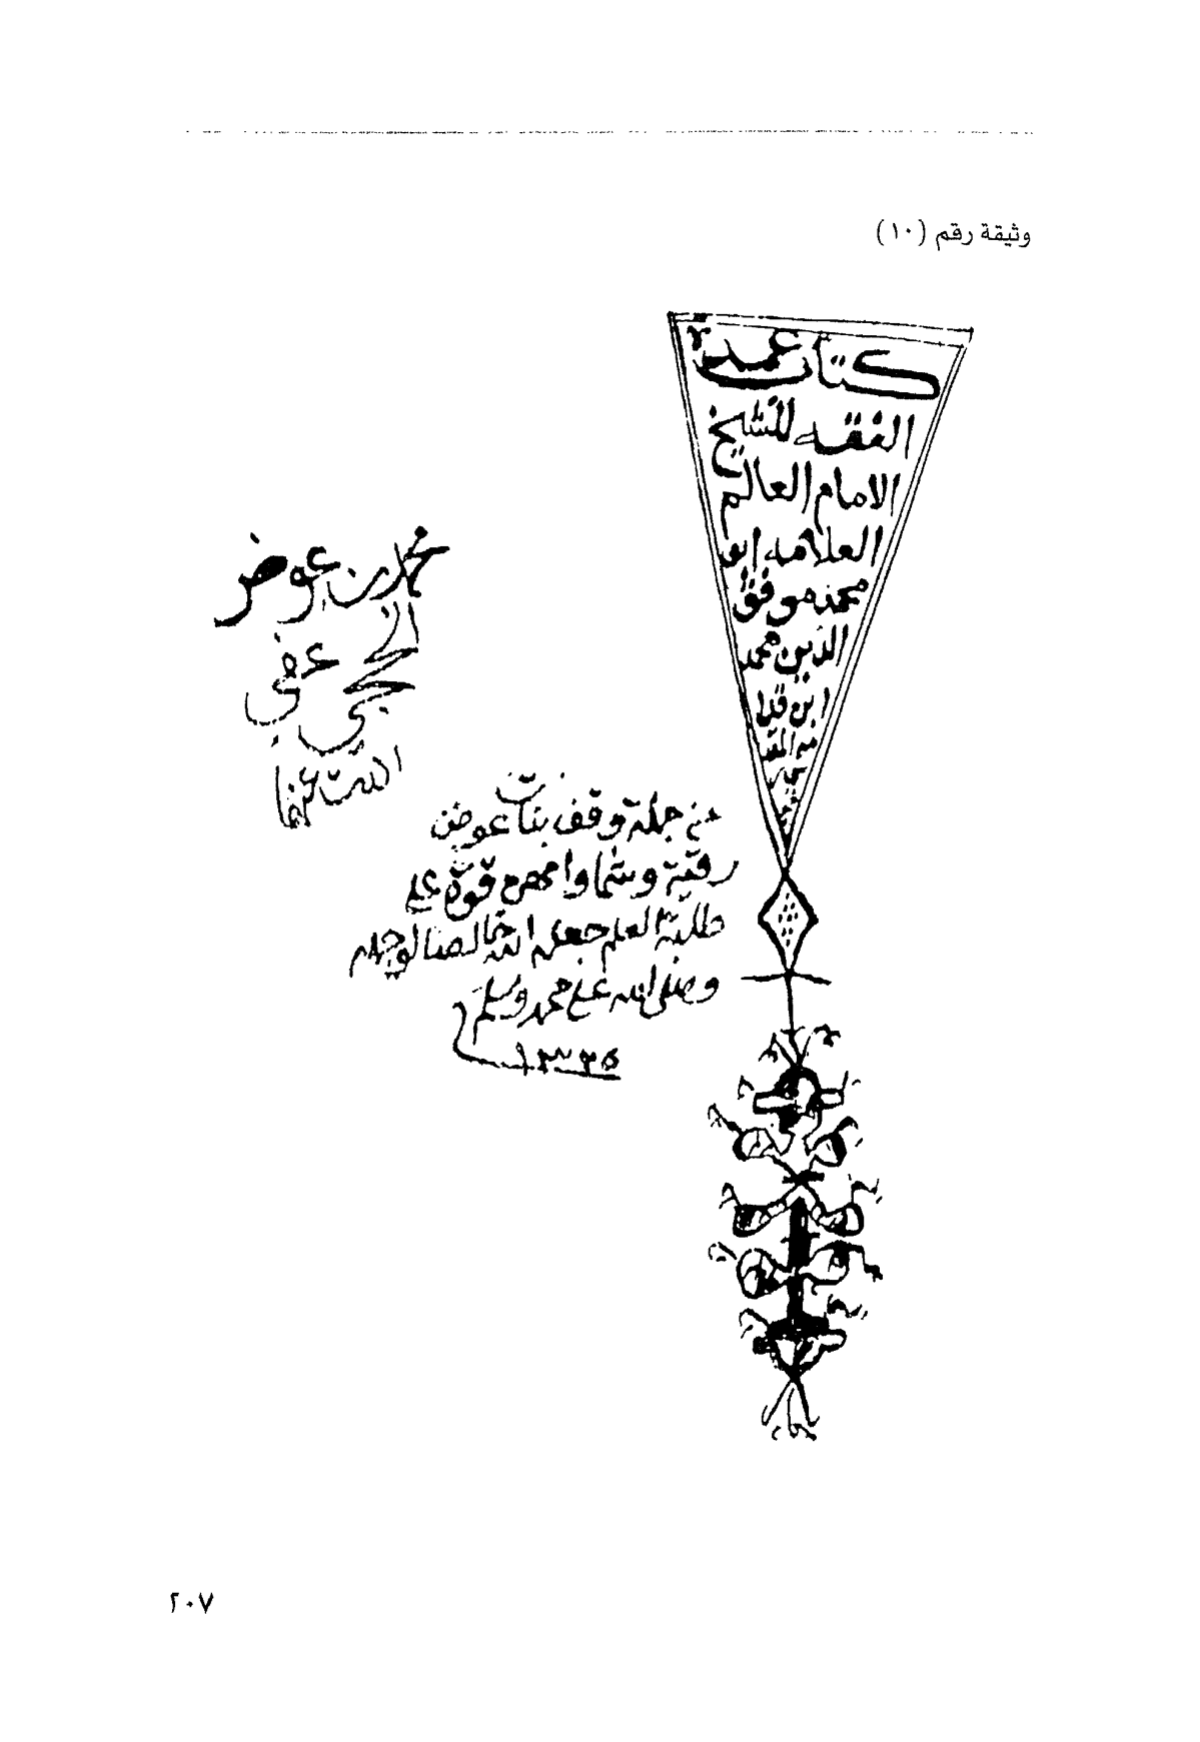 وثيقة رقم (١٠)
كتاب عمدة
الفقه للشيخ
الامام العالم
العلامه ابو
محمد موفق
الدين محمد
ابن قدا
مه المقد
سي
محمد بن عوض
الحجي عفى
الله عنها
من جملة وقف بنات عوض
رقية وشما وامهن قوة على
طلبة العلم جعله الله خالصا لوجهه
وصلى الله على محمد وسلم
١٣٣٥
٢٠٧